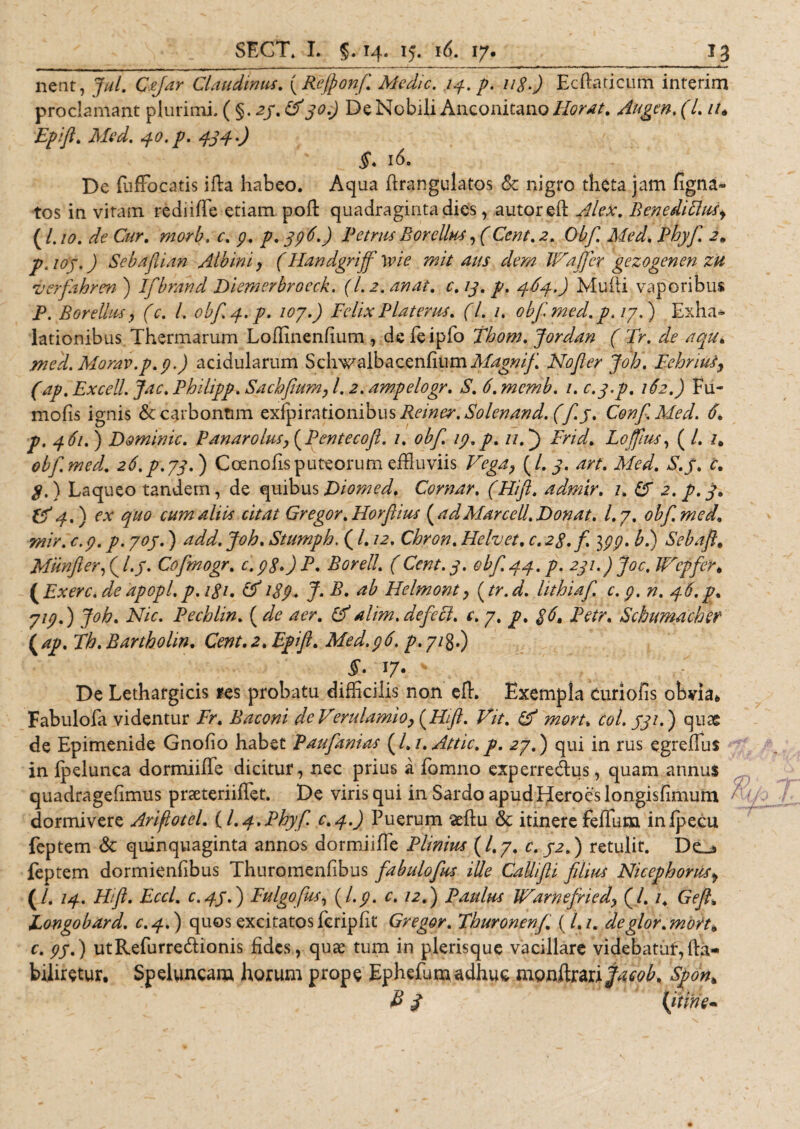 SECT. I. §. 14. 15. 16. 17. 13
nent, Jul. Cæsar Claudinus. (Reſponſ. Medic. 14. p. 118.) Ecſtaticum interim
proclamant plurimi. ( §. 25. & 30.) De Nobili Anconitano Horat. Augen. (l. 11.
Epiſt. Med. 40. p. 434.)
§. 16.
De ſuffocatis iſta habeo. Aqua ſtrangulatos & nigro theta jam ſigna-
tos in vitam rediiſſe etiam poſt quadraginta dies, autor eſt Alex. Benedictus,
(l. 10. de Cur. morb. c. 9. p. 396.) Petrus Borellus, (Cent. 2. Obſ. Med. Phyſ. 2.
p. 105.) Sebaſtian Albini, (Handgriff wie mit aus dem Waſſer gezogenen zu
verfahren ) Iſbrand Diemerbroeck. (l. 2. anat. c. 13. p. 464.) Muſti vaporibus
P. Borellus, (c. l. obſ. 4. p. 107.) Felix Platerus. (l. 1. obſ. med. p. 17.) Exha-
lationibus Thermarum Loſſinenſium, de ſe ipſo Thom. Jordan ( Tr. de aqu.
med. Morav. p. 9.) acidularum Schwalbacenſium Magniſ. Noſter Joh. Fehrius,
(ap. Excell. Jac. Philipp. Sachſium, l. 2. ampelogr. S. 6. memb. 1. c. 3. p. 162.) Fu-
moſis ignis & carbonum exſpirationibus Reiner. Solenand. (ſ. 5. Conſ. Med. 6.
p. 461.) Dominic. Panarolus, (Pentecoſt. 1. obſ. 19. p. 11.) Frid. Loſſius, ( l. 1.
obſ. med. 26. p. 73.) Cœnoſis puteorum effluviis Vega, (l. 3. art. Med. S. 5. c.
8.) Laqueo tandem, de quibus Diomed. Cornar. (Hiſt. admir. 1. & 2. p. 3.
& 4.) ex quo cum aliis citat Gregor. Horſtius (ad Marcell. Donat. l. 7. obſ. med.
mir. c. 9. p. 705.) add. Joh. Stumph. (l. 12. Chron. Helvet. c. 28. f. 399. b.) Sebaſt.
Münſter, (l. 5. Coſmogr. c. 98.) P. Borell. (Cent. 3. obſ. 44. p. 231.) Joc. Wepfer.
(Exerc. de apopl. p. 181. & 189. J. B. ab Helmont, (tr. d. lithiaſ. c. 9. n. 46. p.
719.) Joh. Nic. Pechlin. ( de aer. & alim. defect. c. 7. p. 86. Petr. Schumacher
(ap. Th. Bartholin. Cent. 2. Epiſt. Med. 96. p. 718.)
§. 17.
De Lethargicis res probatu difficilis non eſt. Exempla curioſis obvia.
Fabuloſa videntur Fr. Baconi de Verulamio, (Hiſt. Vit. & mort. col. 531.) quæ
de Epimenide Gnoſio habet Pauſanias (l. 1. Attic. p. 27.) qui in rus egreſſus
in ſpelunca dormiiſſe dicitur, nec prius à ſomno experrectus, quam annus
quadrageſimus præteriiſſet. De viris qui in Sardo apud Heroës longisſimum
dormivere Ariſtotel. (l. 4. Phyſ. c. 4.) Puerum æſtu & itinere feſſum in ſpecu
ſeptem & quinquaginta annos dormiiſſe Plinius (l. 7. c. 52.) retulit. De
ſeptem dormienſibus Thuromenſibus fabuloſus ille Calliſti filius Nicephorus,
(l. 14. Hiſt. Eccl. c. 45.) Fulgoſus, (l. 9. c. 12.) Paulus Warnefried, (l. 1. Geſt.
Longobard. c. 4.) quos excitatos ſcripſit Gregor. Thuronenſ. (l. 1. de glor. mort.
c. 95.) ut Reſurrectionis fides, quæ tum in plerisque vacillare videbatur, ſta-
biliretur. Speluncam horum prope Epheſum adhuc monſtrari Jacob. Spon.
B 3 (itine-